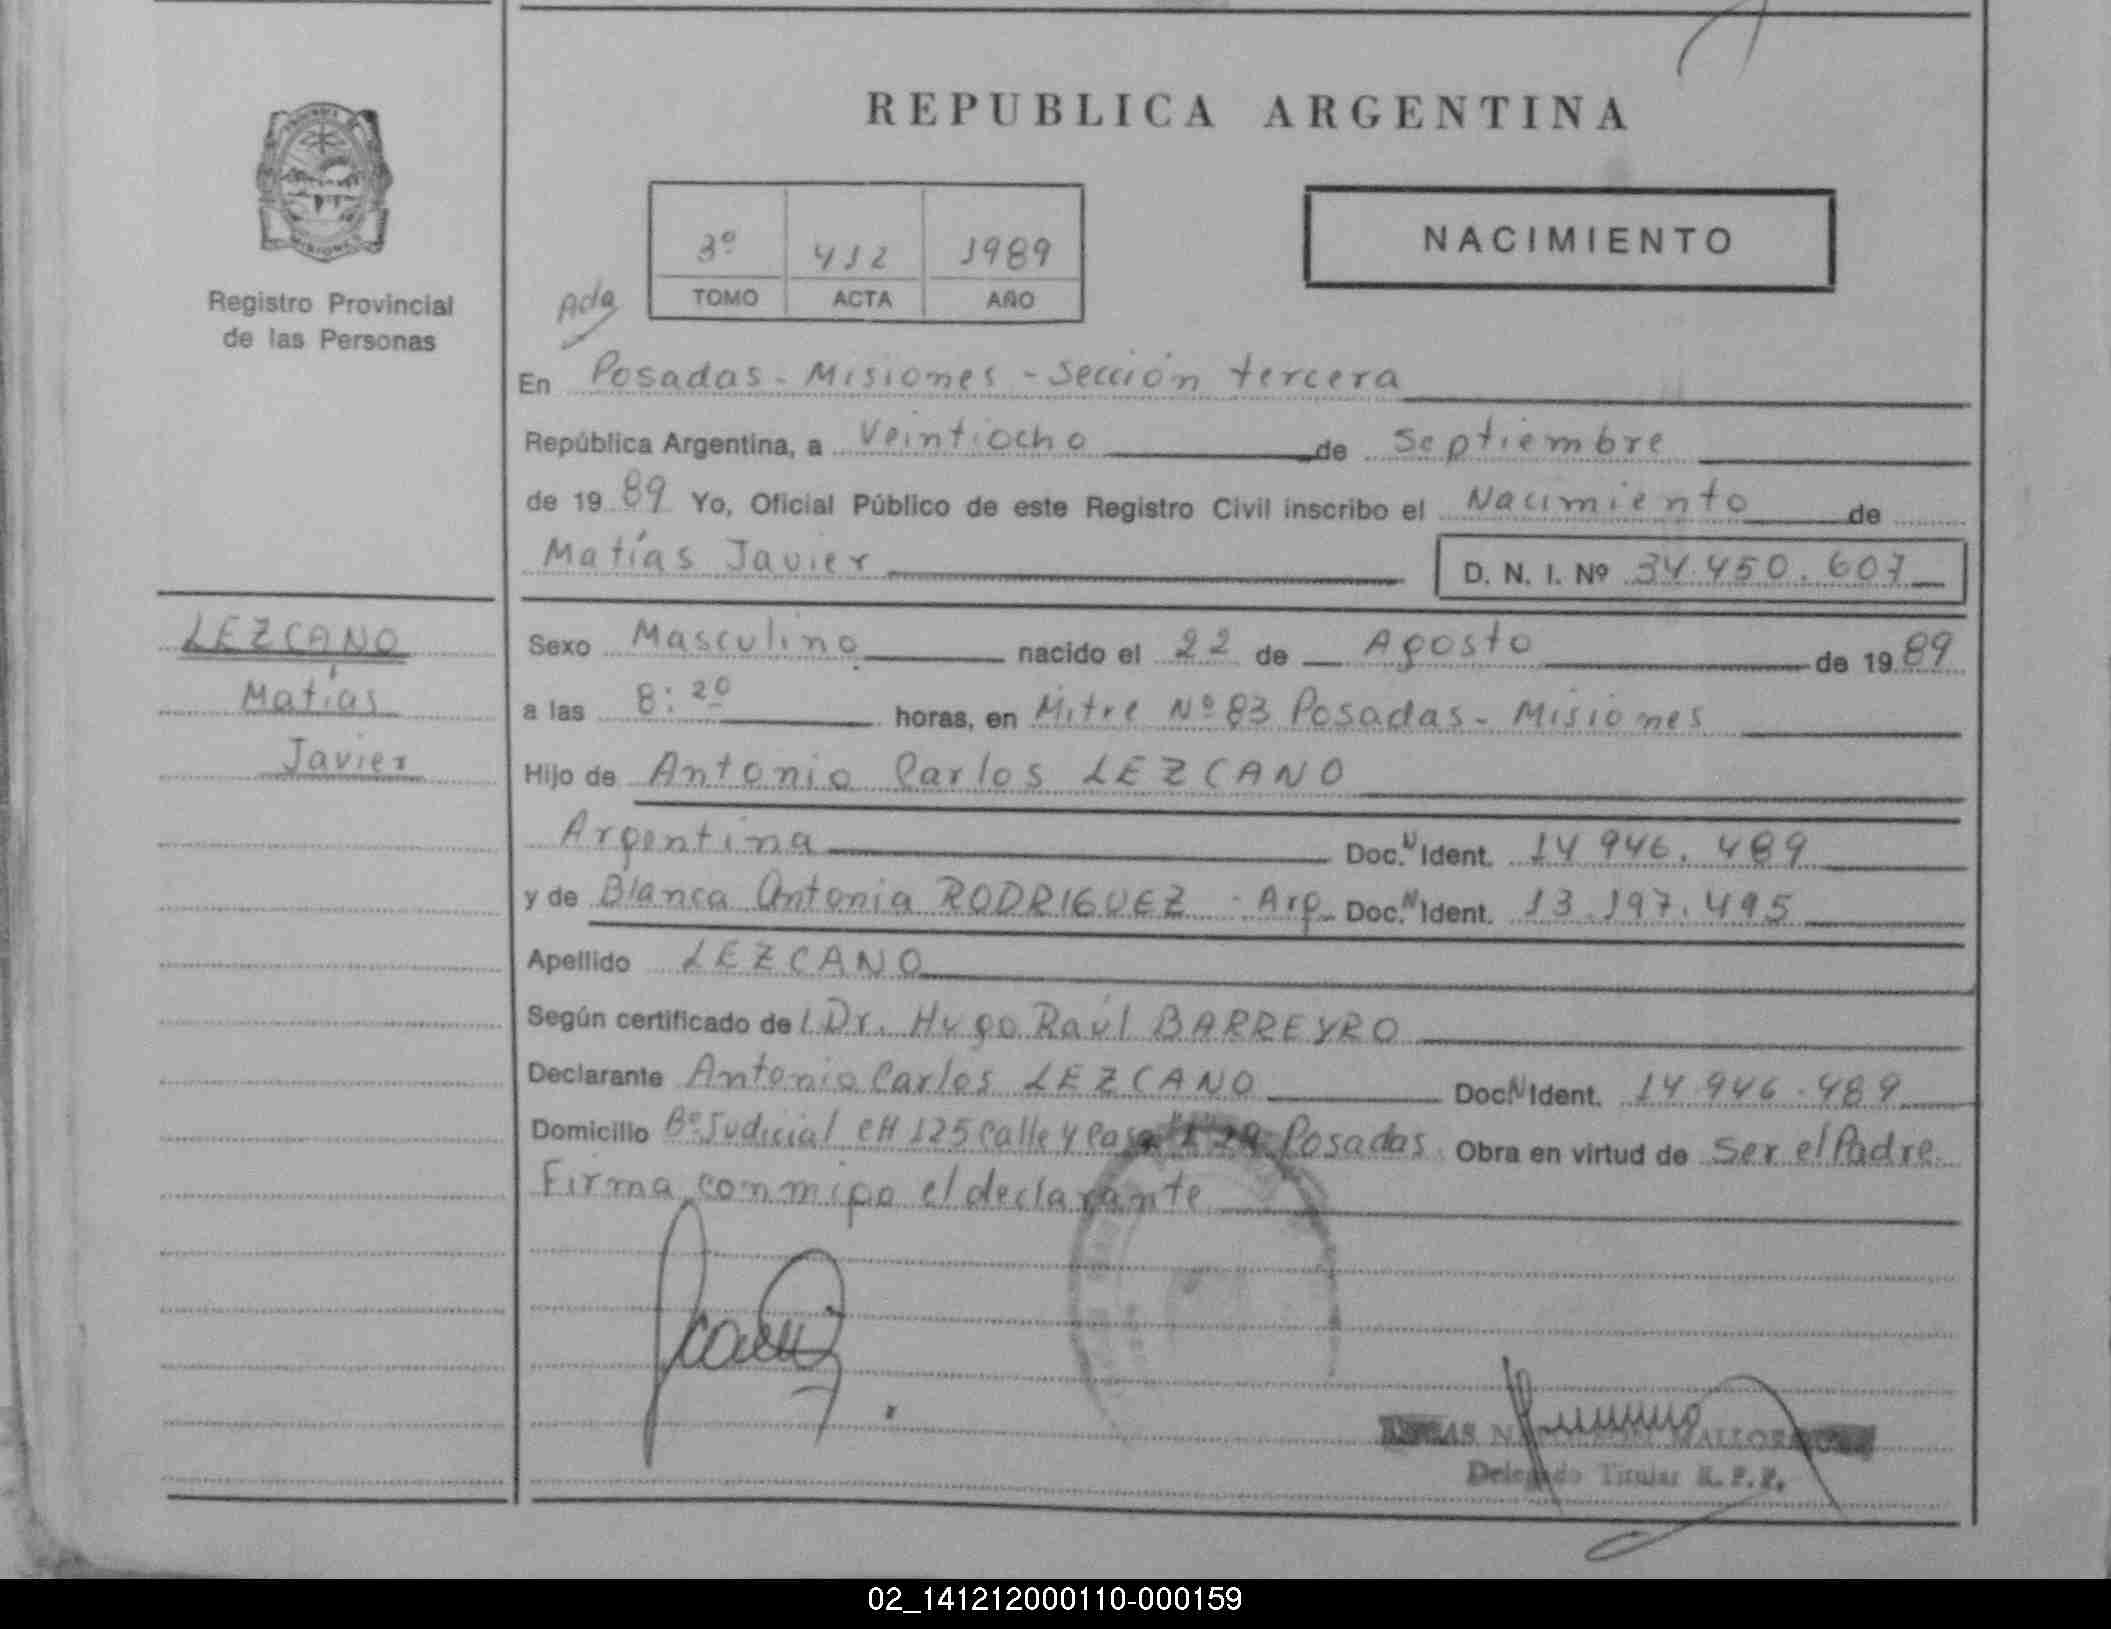 REPUBLICA ARGENTINA
PROVINCIA DE
MISIONES
Registro Provincial
de las Personas
3º 412 1989
TOMO ACTA AÑO
NACIMIENTO
Ada
En Posadas - Misiones - Sección tercera
República Argentina, a Veintiocho de Septiembre
de 19 89 Yo, Oficial Público de este Registro Civil inscribo el Nacimiento de
Matías Javier D. N. I. Nº 34.450.607
LEZCANO
Matías
Javier
Sexo Masculino nacido el 22 de Agosto de 19 89
a las 8:20 horas, en Mitre Nº 83 Posadas - Misiones
Hijo de Antonio Carlos LEZCANO
Argentina Doc. N Ident. 14 946. 489
y de Blanca Antonia RODRIGUEZ - Arg. Doc. N Ident. 13.197.495
Apellido LEZCANO
Según certificado del Dr. Hugo Raúl BARREYRO
Declarante Antonio Carlos LEZCANO Doc. N Ident. 14 946.489
Domicilio Bº Judicial CH 125 Calle y Casa Posadas. Obra en virtud de Ser el Padre.
Firma conmigo el declarante
Delegado Titular R. P. P.
02_141212000110-000159